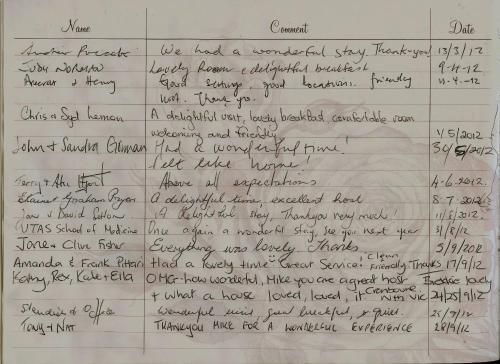 Name Comment Date
We had a wonderful stay. Thank-you! 13/3/12
Judy Norman Lovely Room & delightful breakfast 9-4-12
& Henry Good setting, good location. friendly 11-4-12
host. Thank you.
Chris & Syd Leman A delightful visit, lovely breakfast comfortable room
welcoming and friendly 4/5/2012
John & Sandra Gilman Had a wonderful time! 30/5/2012
Felt like home!
Terry & Above all expectations 4-6-2012
Elaine Graham Pryor A delightful time, excellent host 8-7-2012
& David A delightful stay, Thankyou very much! 11/8/2012
UTAS School of Medicine Once again a wonderful stay, see you next year 31/8/12
Jane & Clive Fisher Everything was lovely thanks 5/9/2012
Amanda & Frank Had a lovely time Great Service! Clean Friendly. Thanks 17/9/12
Kathy, Rex, Kate & Ella OMG-how wonderful, Mike you are a great host
& what a house loved, loved, it Nth Vic 24/25/9/12
Wonderful good breakfast, & quiet. 25/9/12
Tony & Nat Thankyou Mike for a wonderful experience 28/9/12